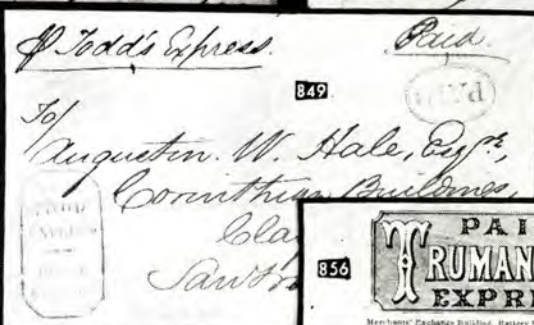 ℔ Todd's Express. Paid.
849
PAID
To/
Augustin. W. Hale, Esqre,
Corinthian Buildings,
Clay
San
856
PAI
TRUMAN
EXPRE
Merchants' Exchange Building, Battery